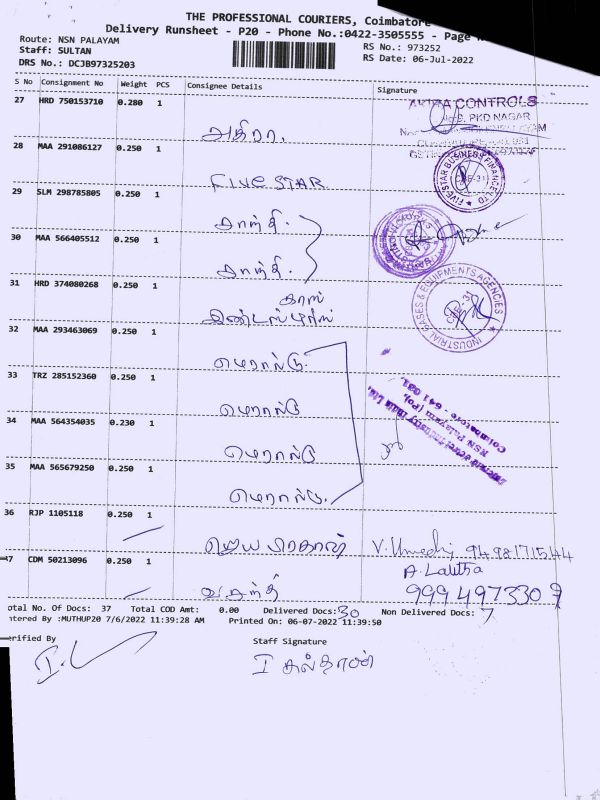 THE PROFESSIONAL COURIERS, Coimbatore
Delivery Runsheet - P20 - Phone No.:0422-3505555 - Page
Route: NSN PALAYAM
RS No.: 973252
Staff: SULTAN
RS Date: 06-Jul-2022
DRS No.: DCJB97325203
S No Consignment No Weight PCS Consignee Details Signature
27 HRD 750153710 0.280 1
CONTROLS
PKD NAGAR
அதிரா.
28 MAA 291086127 0.250 1
FIVE STAR BUSINESS FINANCE LTD
FIVE STAR
29 SLM 298785805 0.250 1
காந்தி
30 MAA 566405512 0.250 1
காந்தி.
31 HRD 374080268 0.250 1
INDUSTRIAL GASES & EQUIPMENTS AGENCIES
CBE-31
32 MAA 293463069 0.250 1
33 TRZ 285152360 0.250 1
34 MAA 564354035 0.230 1
NSN Palayam (Po),
Coimbatore - 641 031.
35 MAA 565679250 0.250 1
36 RJP 1105118 0.250 1
ஜெய பிரகாஷ் 9498171544
47 CDM 50213096 0.250 1
A. Lalitha
வசந்தி 9994973309
otal No. Of Docs: 37 Total COD Amt: 0.00 Delivered Docs: 30 Non Delivered Docs: 7
ntered By :MUTHUP20 7/6/2022 11:39:28 AM Printed On: 06-07-2022 11:39:50
erified By Staff Signature
I சுல்தான்